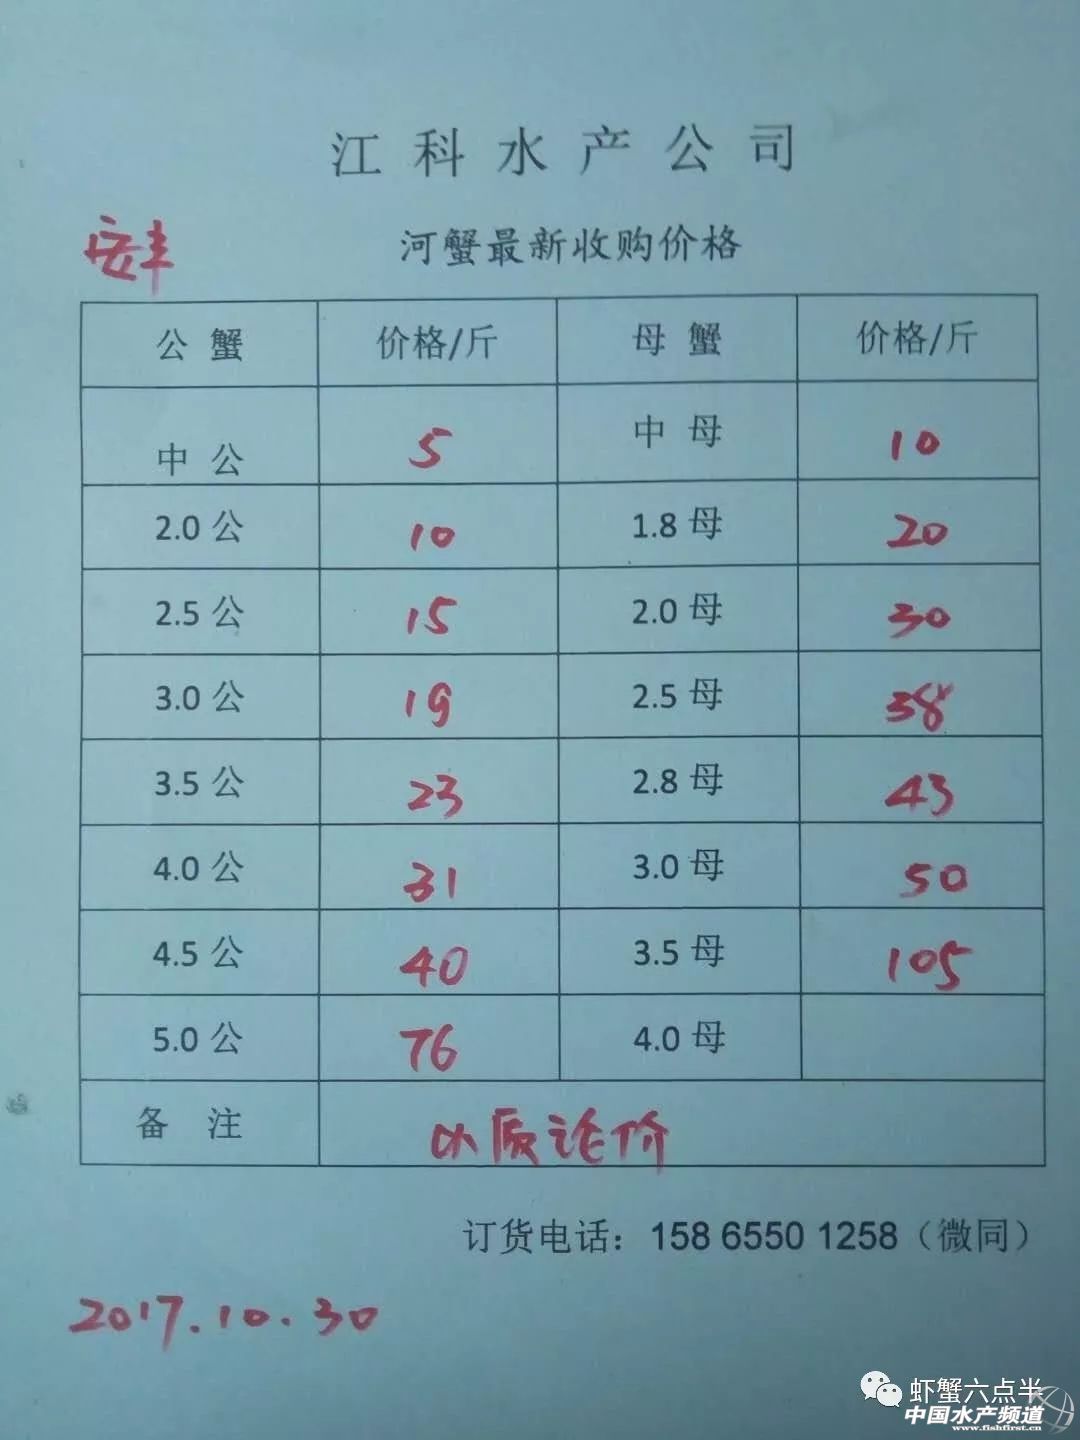 江科水产公司
安丰
河蟹最新收购价格
公蟹 价格/斤 母蟹 价格/斤
中公 5 中母 10
2.0公 10 1.8母 20
2.5公 15 2.0母 30
3.0公 19 2.5母 38
3.5公 23 2.8母 43
4.0公 31 3.0母 50
4.5公 40 3.5母 105
5.0公 76 4.0母
备注 以质论价
订货电话：158 6550 1258（微同）
2017.10.30
虾蟹六点半
中国水产频道
www.fishfirst.cn